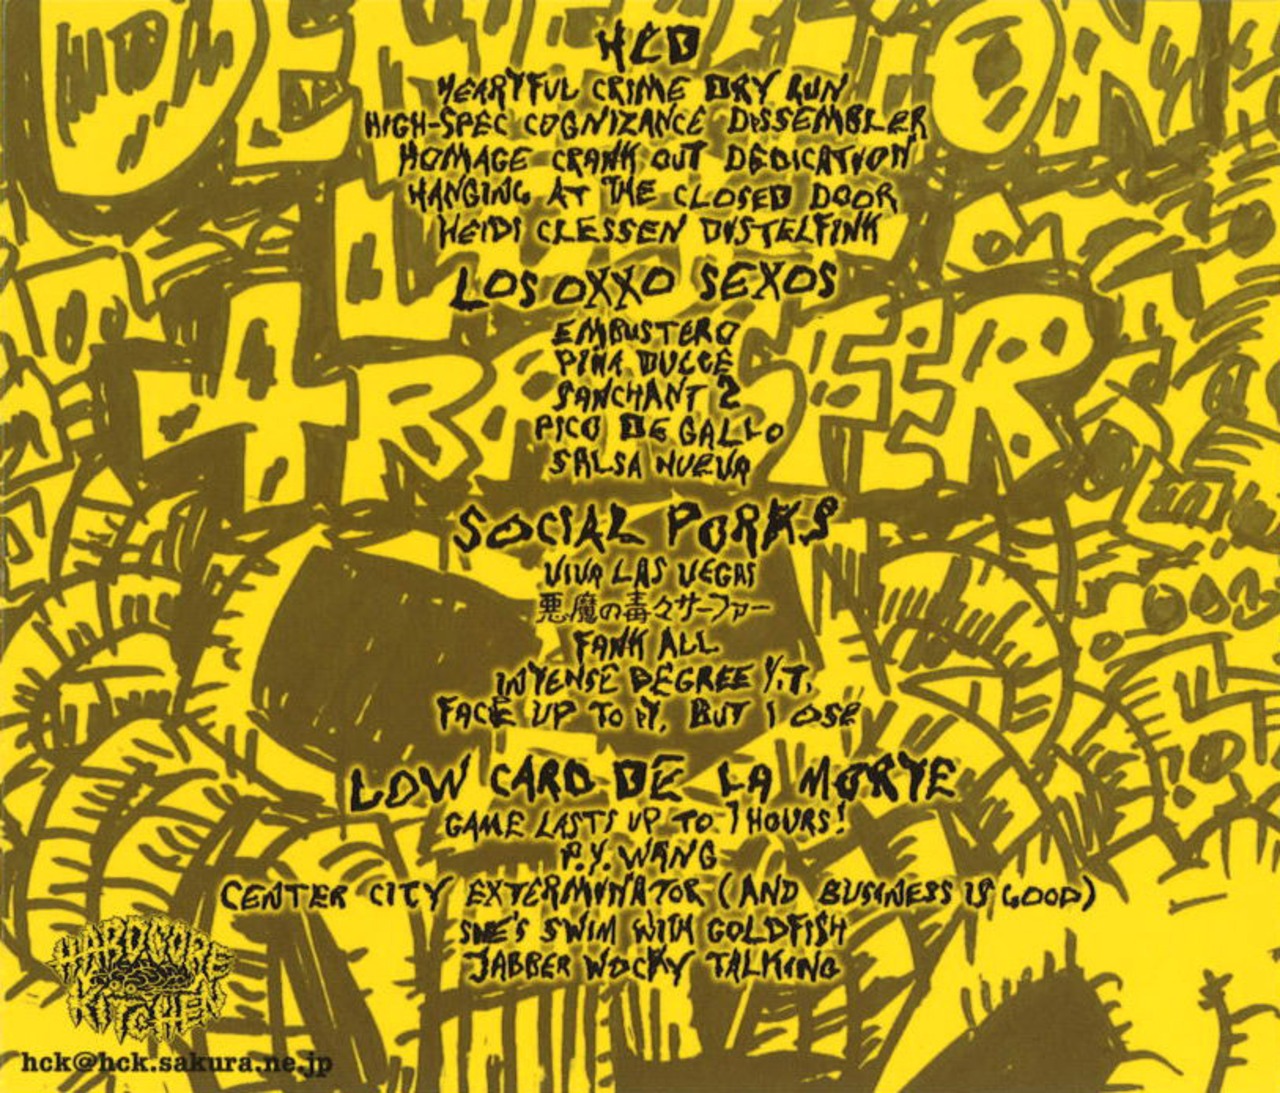 HCD
HEARTFUL CRIME DRY RUN
HIGH-SPEC COGNIZANCE DISSEMBLER
HOMAGE CRANK OUT DEDICATION
HANGING AT THE CLOSED DOOR
HEIDI CLESSEN DISTELFINK
LOS OXXO SEXOS
EMBUSTERO
PIÑA DULCE
SANCHANT 2
PICO DE GALLO
SALSA NUEVA
SOCIAL PORKS
VIVA LAS VEGAS
悪魔の毒々サーファー
FANK ALL
INTENSE DEGREE Y.T.
FACE UP TO IT, BUT I OSE
LOW CARD DE LA MORTE
GAME LASTS UP TO 7 HOURS!
P.Y. WANG
CENTER CITY EXTERMINATOR (AND BUSINESS IS GOOD)
SHE'S SWIM WITH GOLDFISH
JABBER WOCKY TALKING
HARDCORE
KITCHEN
hck@hck.sakura.ne.jp